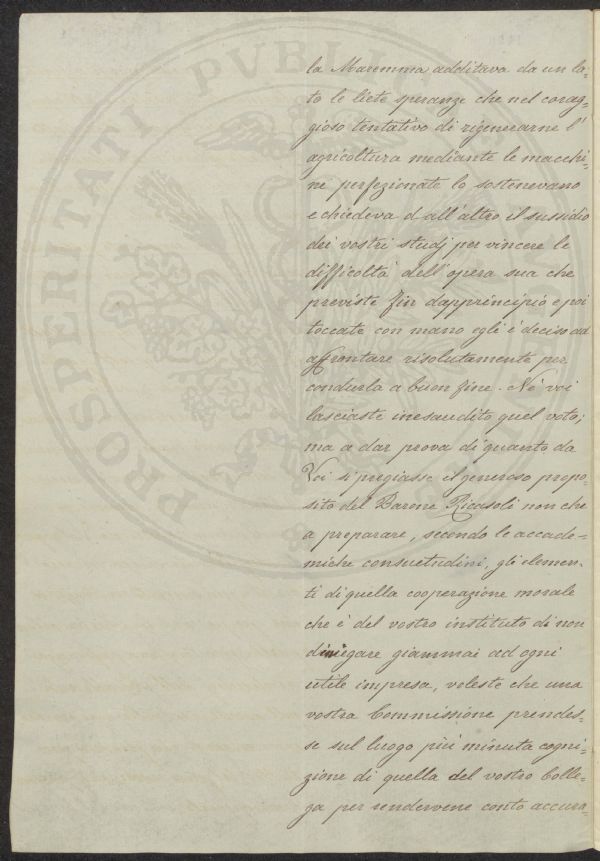 la Maremma additava da un la-
to le liete speranze che nel corag-
gioso tentativo di rigenerarne l'
agricoltura mediante le macchi-
ne perfezionate lo sostenevano
e chiedeva dall'altro il sussidio
dei vostri studj per vincere le
difficoltà dell'opera sua che
previste fin dapprincipio e poi
toccate con mano egli è deciso ad
affrontare risolutamente per
condurla a buon fine. Nè voi
lasciaste inesaudito quel voto;
ma a dar prova di quanto da
Voi si pregiasse il generoso propo-
sito del Barone Ricasoli non che
a preparare, secondo le accade-
miche consuetudini, gli elemen-
ti di quella cooperazione morale
che è del vostro instituto di non
diniegare giammai ad ogni
utile impresa, voleste che una
vostra Commissione prendes-
se sul luogo più minuta cogni-
zione di quella del vostro Colle-
ga per rendervene conto accura-
PROSPERITATI PVBLICAE